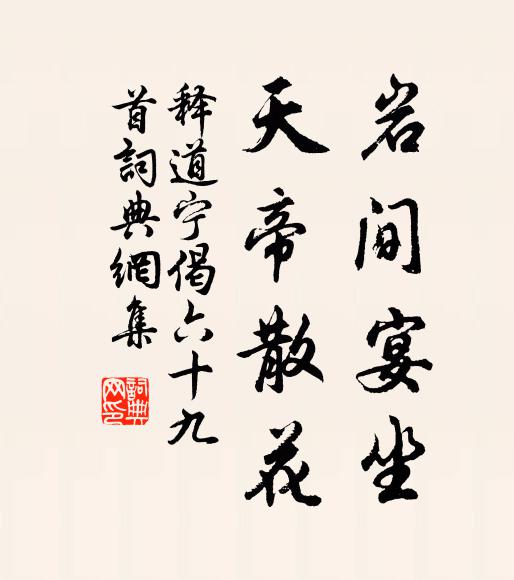 岩间宴坐
天帝散花
释道宁偈六十九
首詞典網集
詞典
网印